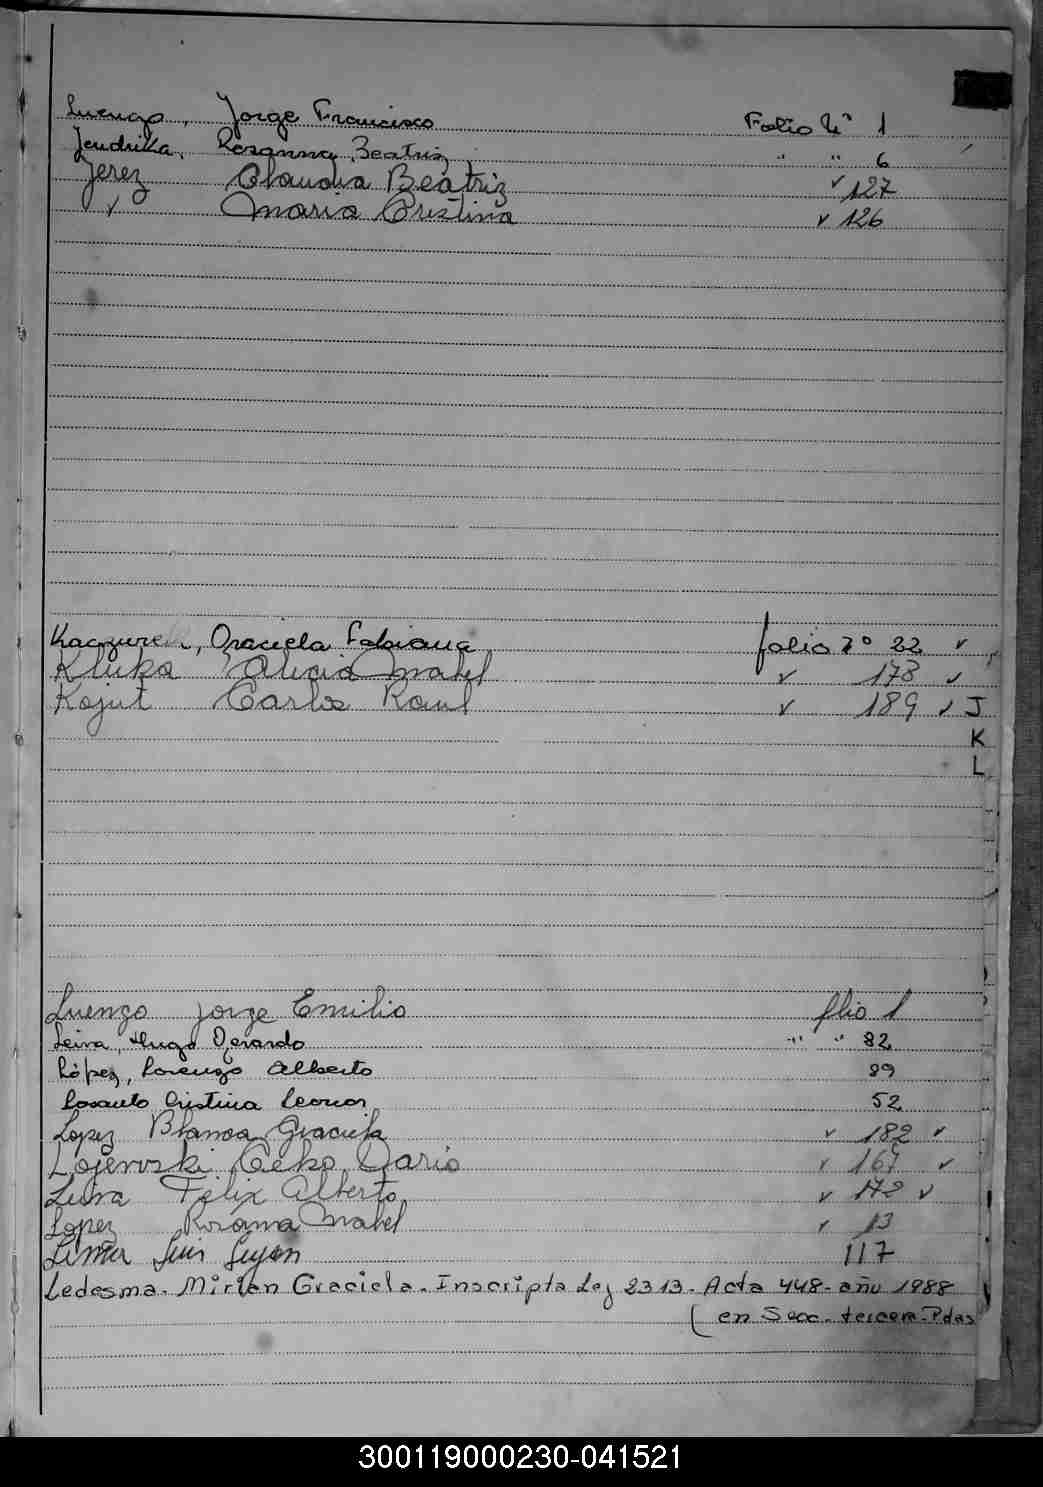 Luengo, Jorge Francisco Folio Nº 1
Jendrika, Rosanna Beatriz " " 6
Jerez Claudia Beatriz 127
" Maria Cristina 126
Graciela Fabiana folio nº 22
Kluka Alicia Mabel 178
Kojut Carlos Raul 189 J
K
L
Luengo Jorge Emilio flio 1
Leiva, Hugo Gerardo " " 82
López, Lorenzo Alberto 89
Cristina Leonor 52
Lopez Blanca Graciela 182
Dario 167
Leiva Felix Alberto 172
Lopez Rosana Mabel 13
Luis 117
Ledesma. Mirian Graciela. Inscripta Ley 2313. Acta 448. año 1988
(en Secc. tercera. Pdas
300119000230-041521